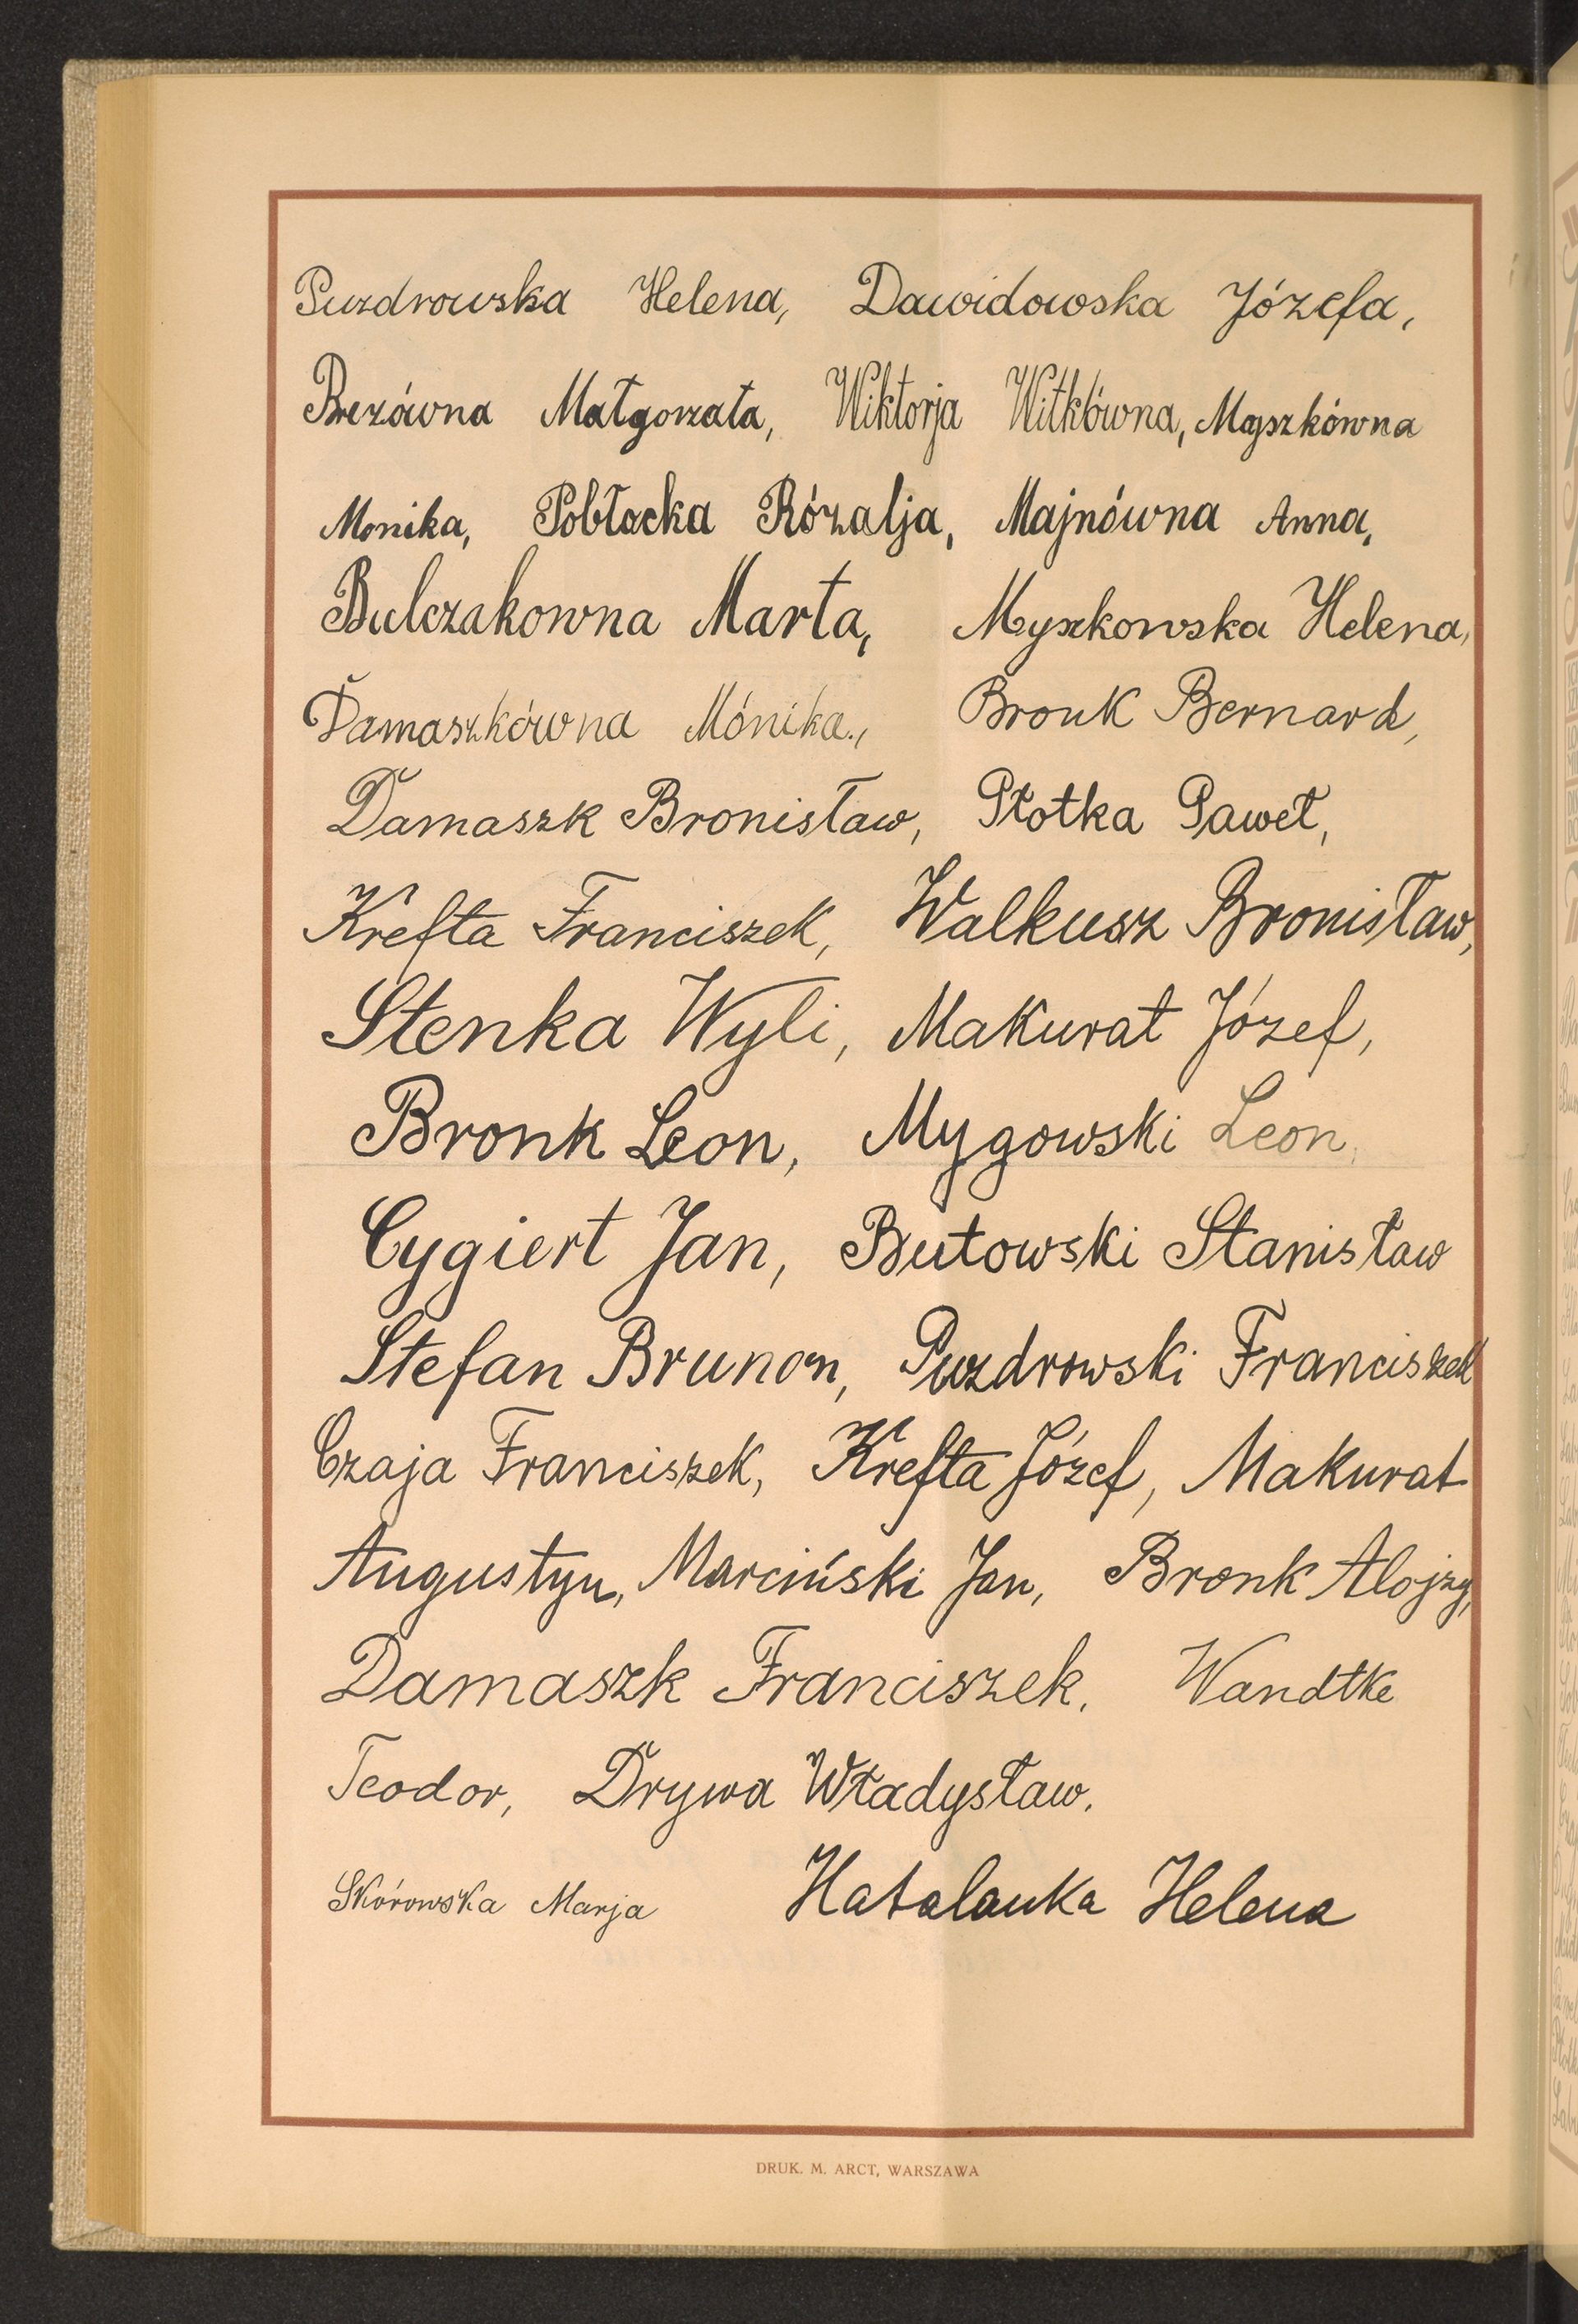 Puzdrowska Helena, Dawidowska Józefa,
Brezówna Małgorzata, Wiktorja Witkówna, Myszkówna
Monika, Pobłocka Rózalja, Majnówna Anna,
Bulczakowna Marta, Myszkowska Helena,
Damaszkówna Mónika., Bronk Bernard,
Damaszk Bronisław, Płotka Paweł,
Krefta Franciszek, Walkusz Bronisław,
Stenka Wyli, Makurat Józef,
Bronk Leon, Mygowski Leon,
Cygiert Jan, Butowski Stanisław
Stefan Brunon, Puzdrowski Franciszek
Czaja Franciszek, Krefta Józef, Makurat
Augustyn, Marciński Jan, Bronk Alojzy,
Damaszk Franciszek. Wandtke
Teodor, Drywa Władysław.
Skórowska Marja Hatalanka Helena
DRUK. M. ARCT, WARSZAWA